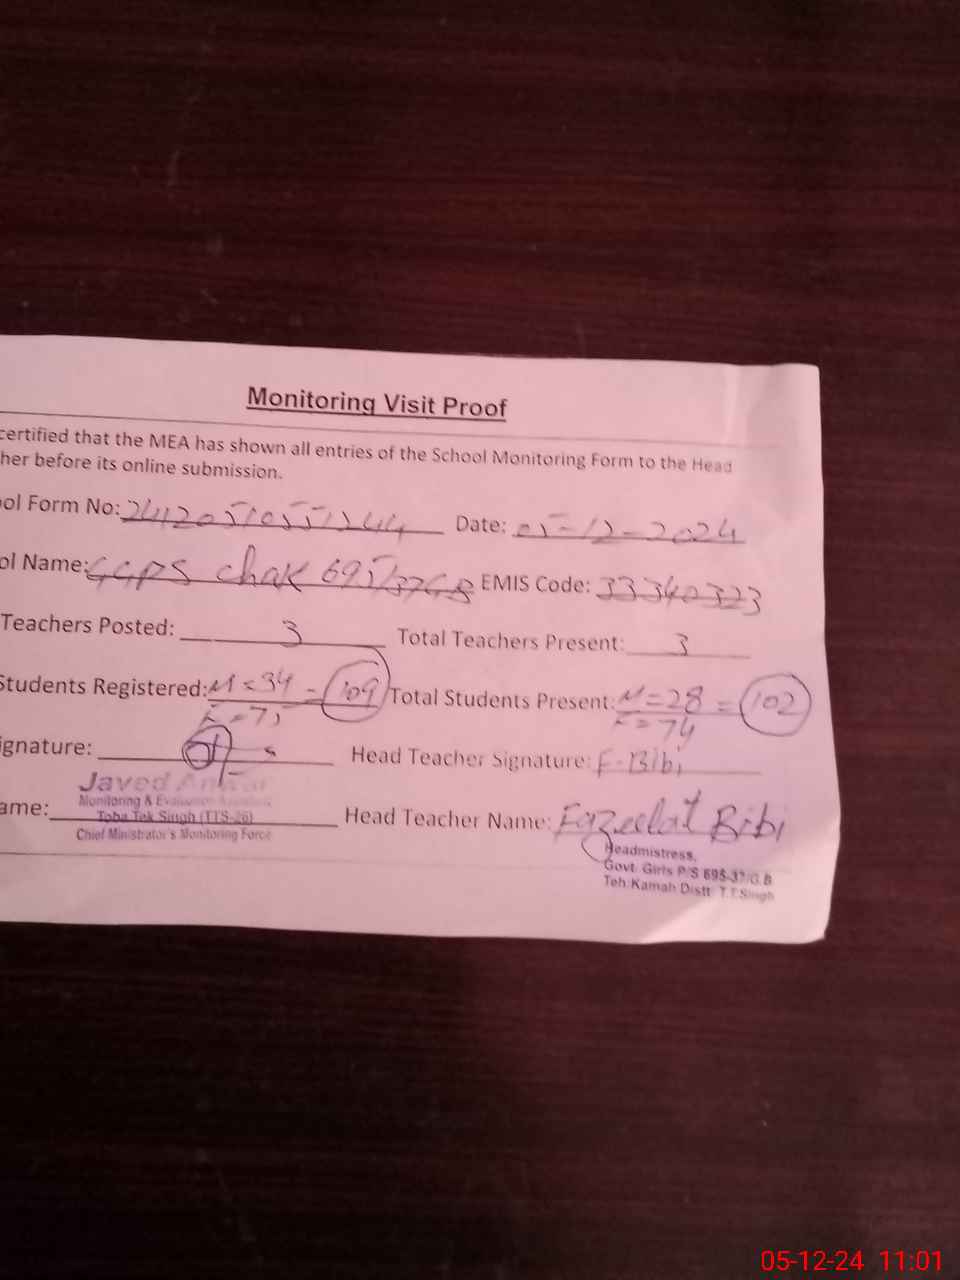 Monitoring Visit Proof
certified that the MEA has shown all entries of the School Monitoring Form to the Head
her before its online submission.
ool Form No: 24120510551244 Date: 05-12-2024
ol Name: GGPS Chak 695/37GB EMIS Code: 33340323
Teachers Posted: 3 Total Teachers Present: 3
Students Registered: M=34 = 109 Total Students Present: M=28 = 102
F=75 F=74
ignature: Head Teacher Signature: F-Bibi
Javed
Monitoring & Evaluation
ame: Toba Tek Singh (TTS-26) Head Teacher Name: Fazeelat Bibi
Chief Ministrator's Monitoring Force
Headmistress,
Govt. Girls P/S 695-37/G.B
Teh: Kamah Distt: T.T.Singh
05-12-24 11:01